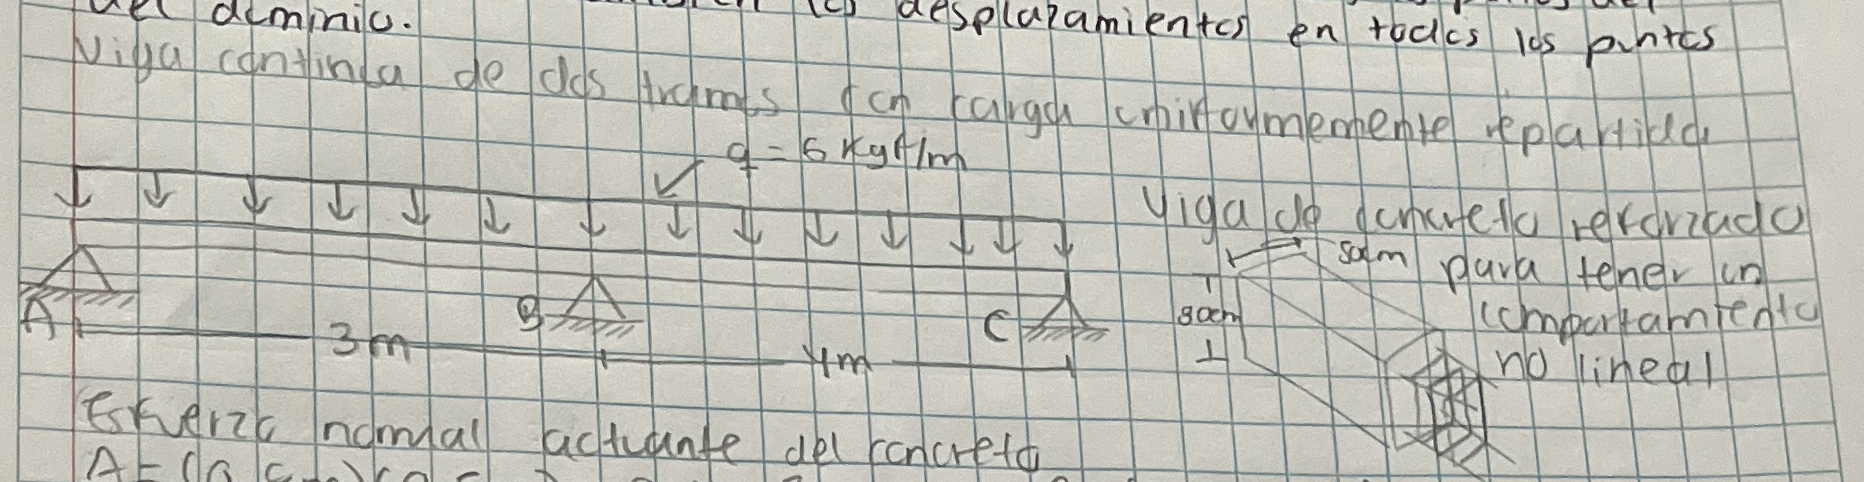 del dominio. desplazamientos en todos los puntos
Viga continua de dos tramos con carga uniformemente repartida
q = 5 Kgf/m
Viga de concreto reforzado
50cm para tener un
30cm comportamiento
A B C no lineal
3m 4m
Esfuerzo normal actuante del concreto